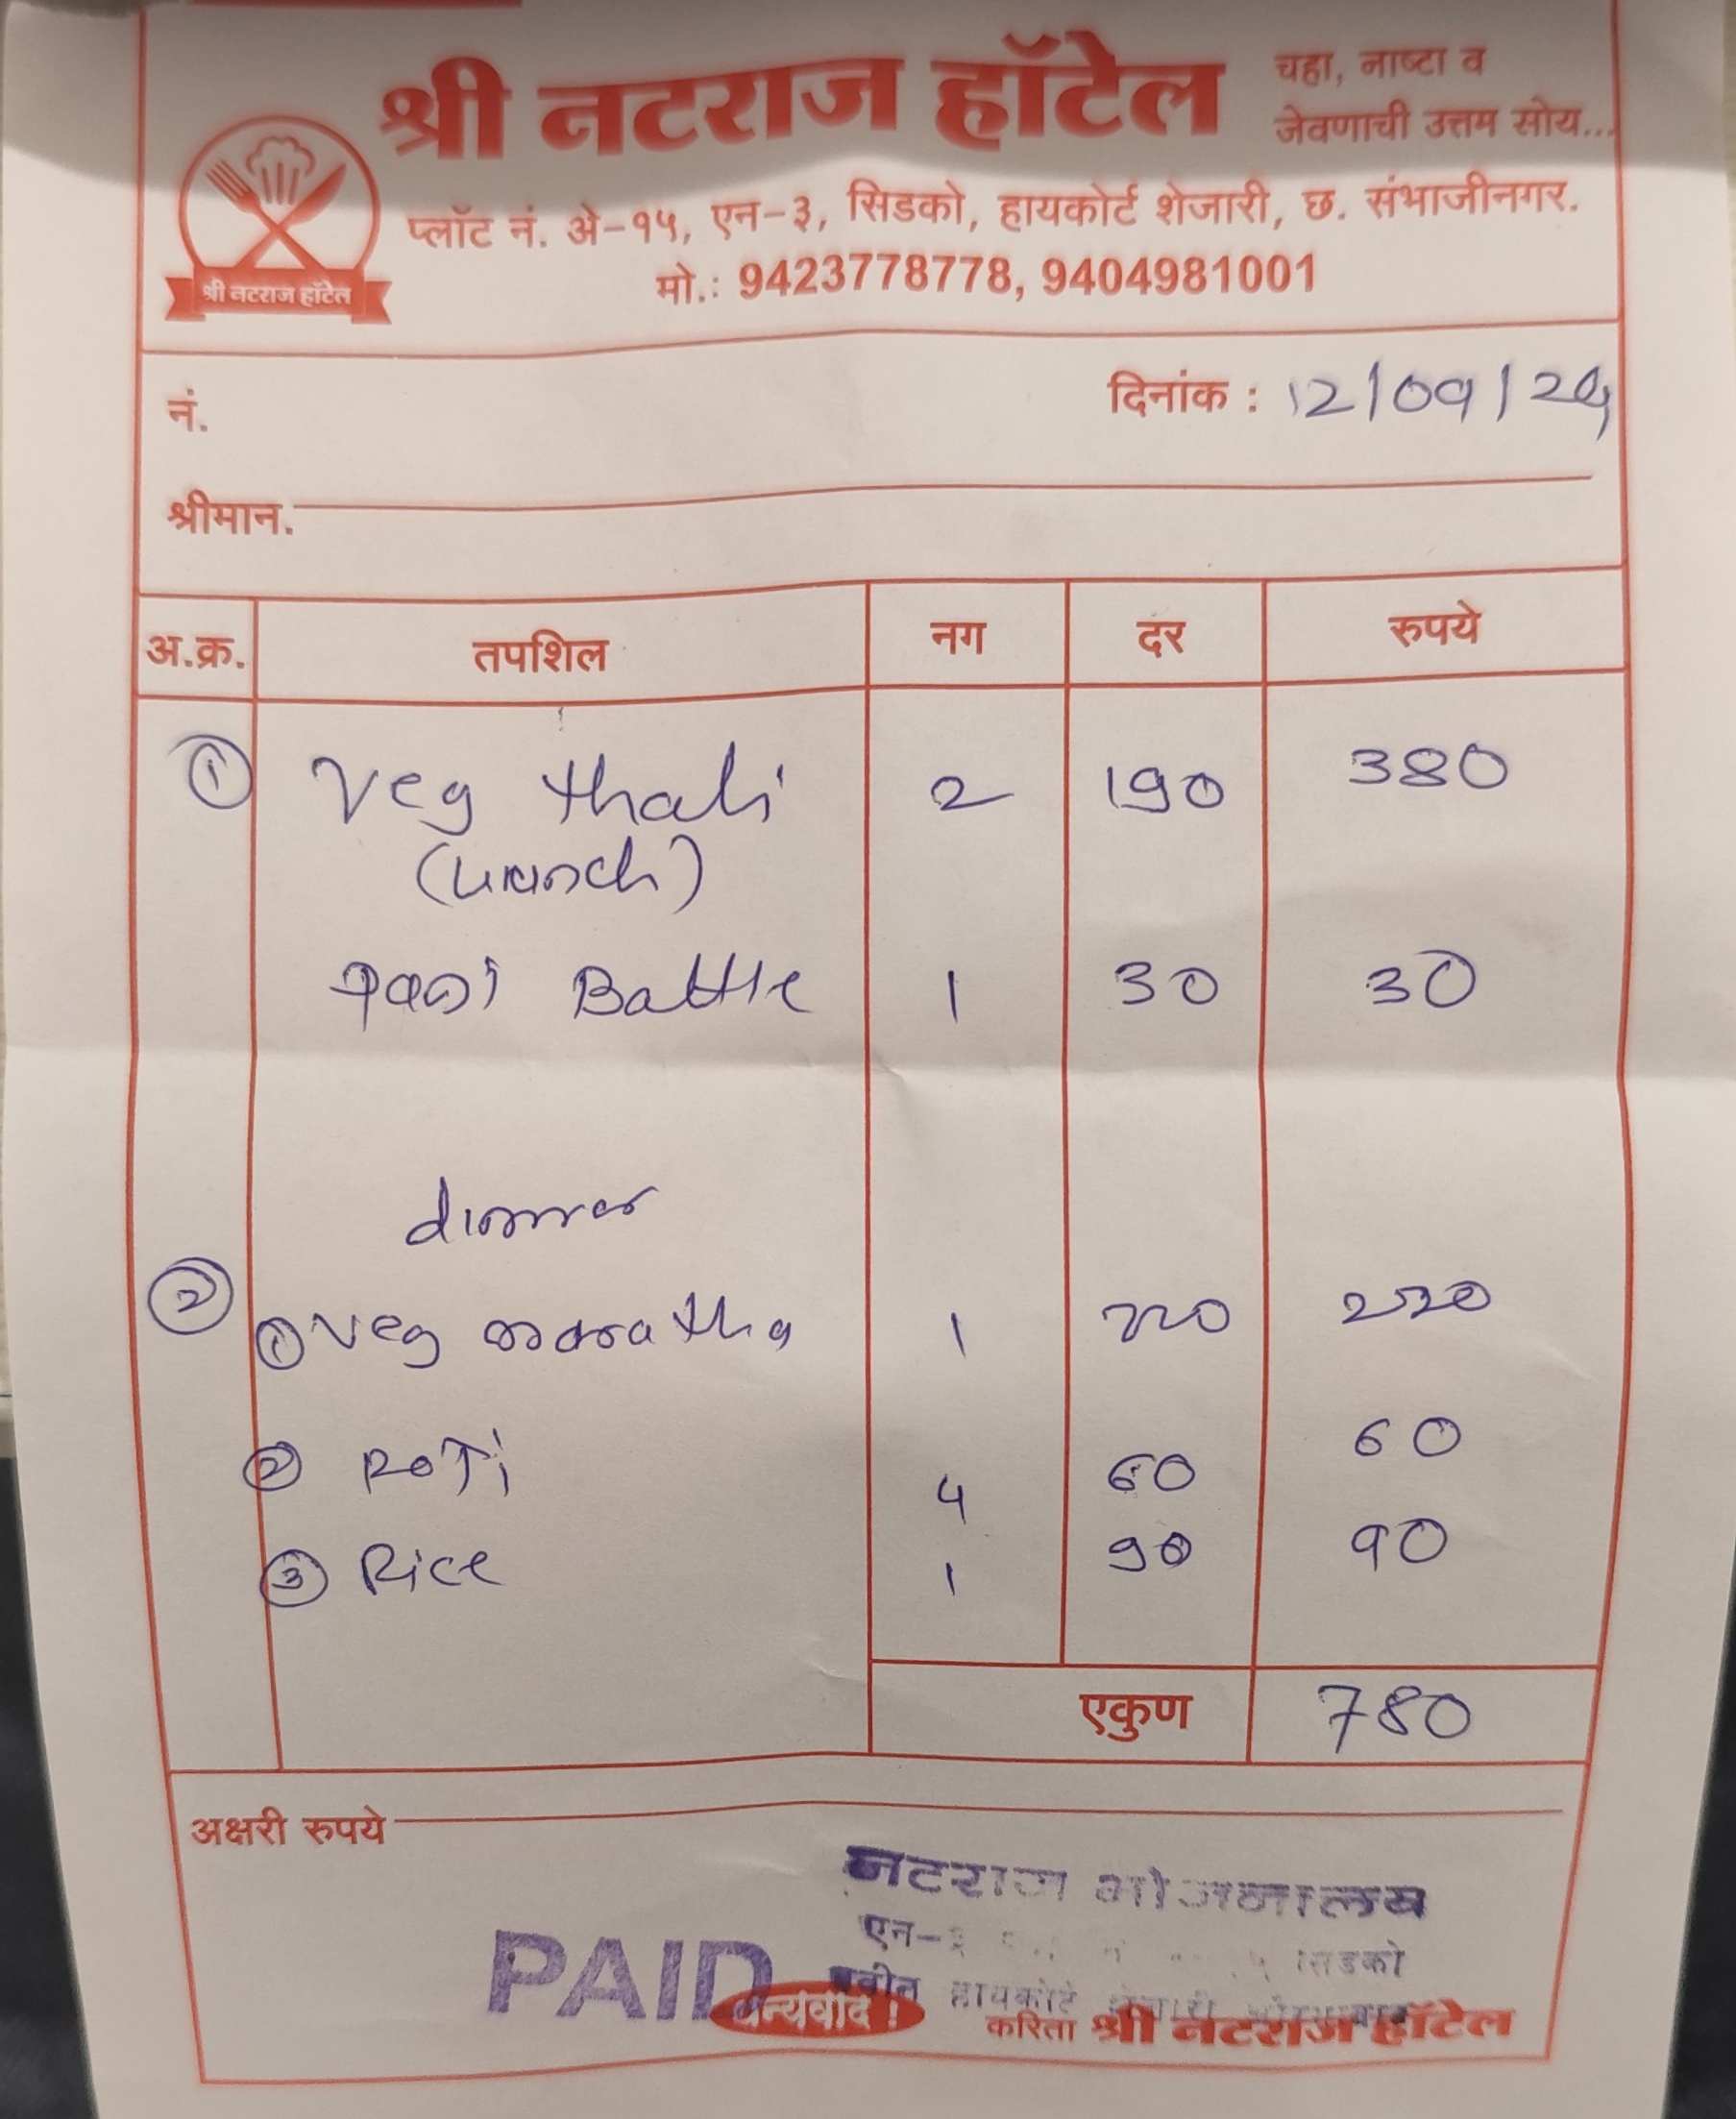 श्री नटराज हॉटेल
चहा, नाष्टा व
जेवणाची उत्तम सोय...
श्री नटराज हॉटेल
प्लॉट नं. अे-१५, एन-३, सिडको, हायकोर्ट शेजारी, छ. संभाजीनगर.
मो.: 9423778778, 9404981001
नं.
दिनांक : 12/09/24
श्रीमान.
अ.क्र. तपशिल नग दर रुपये
① Veg thali 2 190 380
(Lunch)
pani Battle 1 30 30
dinner
② ① veg maratha 1 220 220
② ROTi 4 60 60
③ Rice 1 90 90
एकुण 780
अक्षरी रुपये
नटराज भोजनालय
एन-३ सिडको
PAID
नवीन हायकोर्ट शेजारी
धन्यवाद !
करिता श्री नटराज हॉटेल